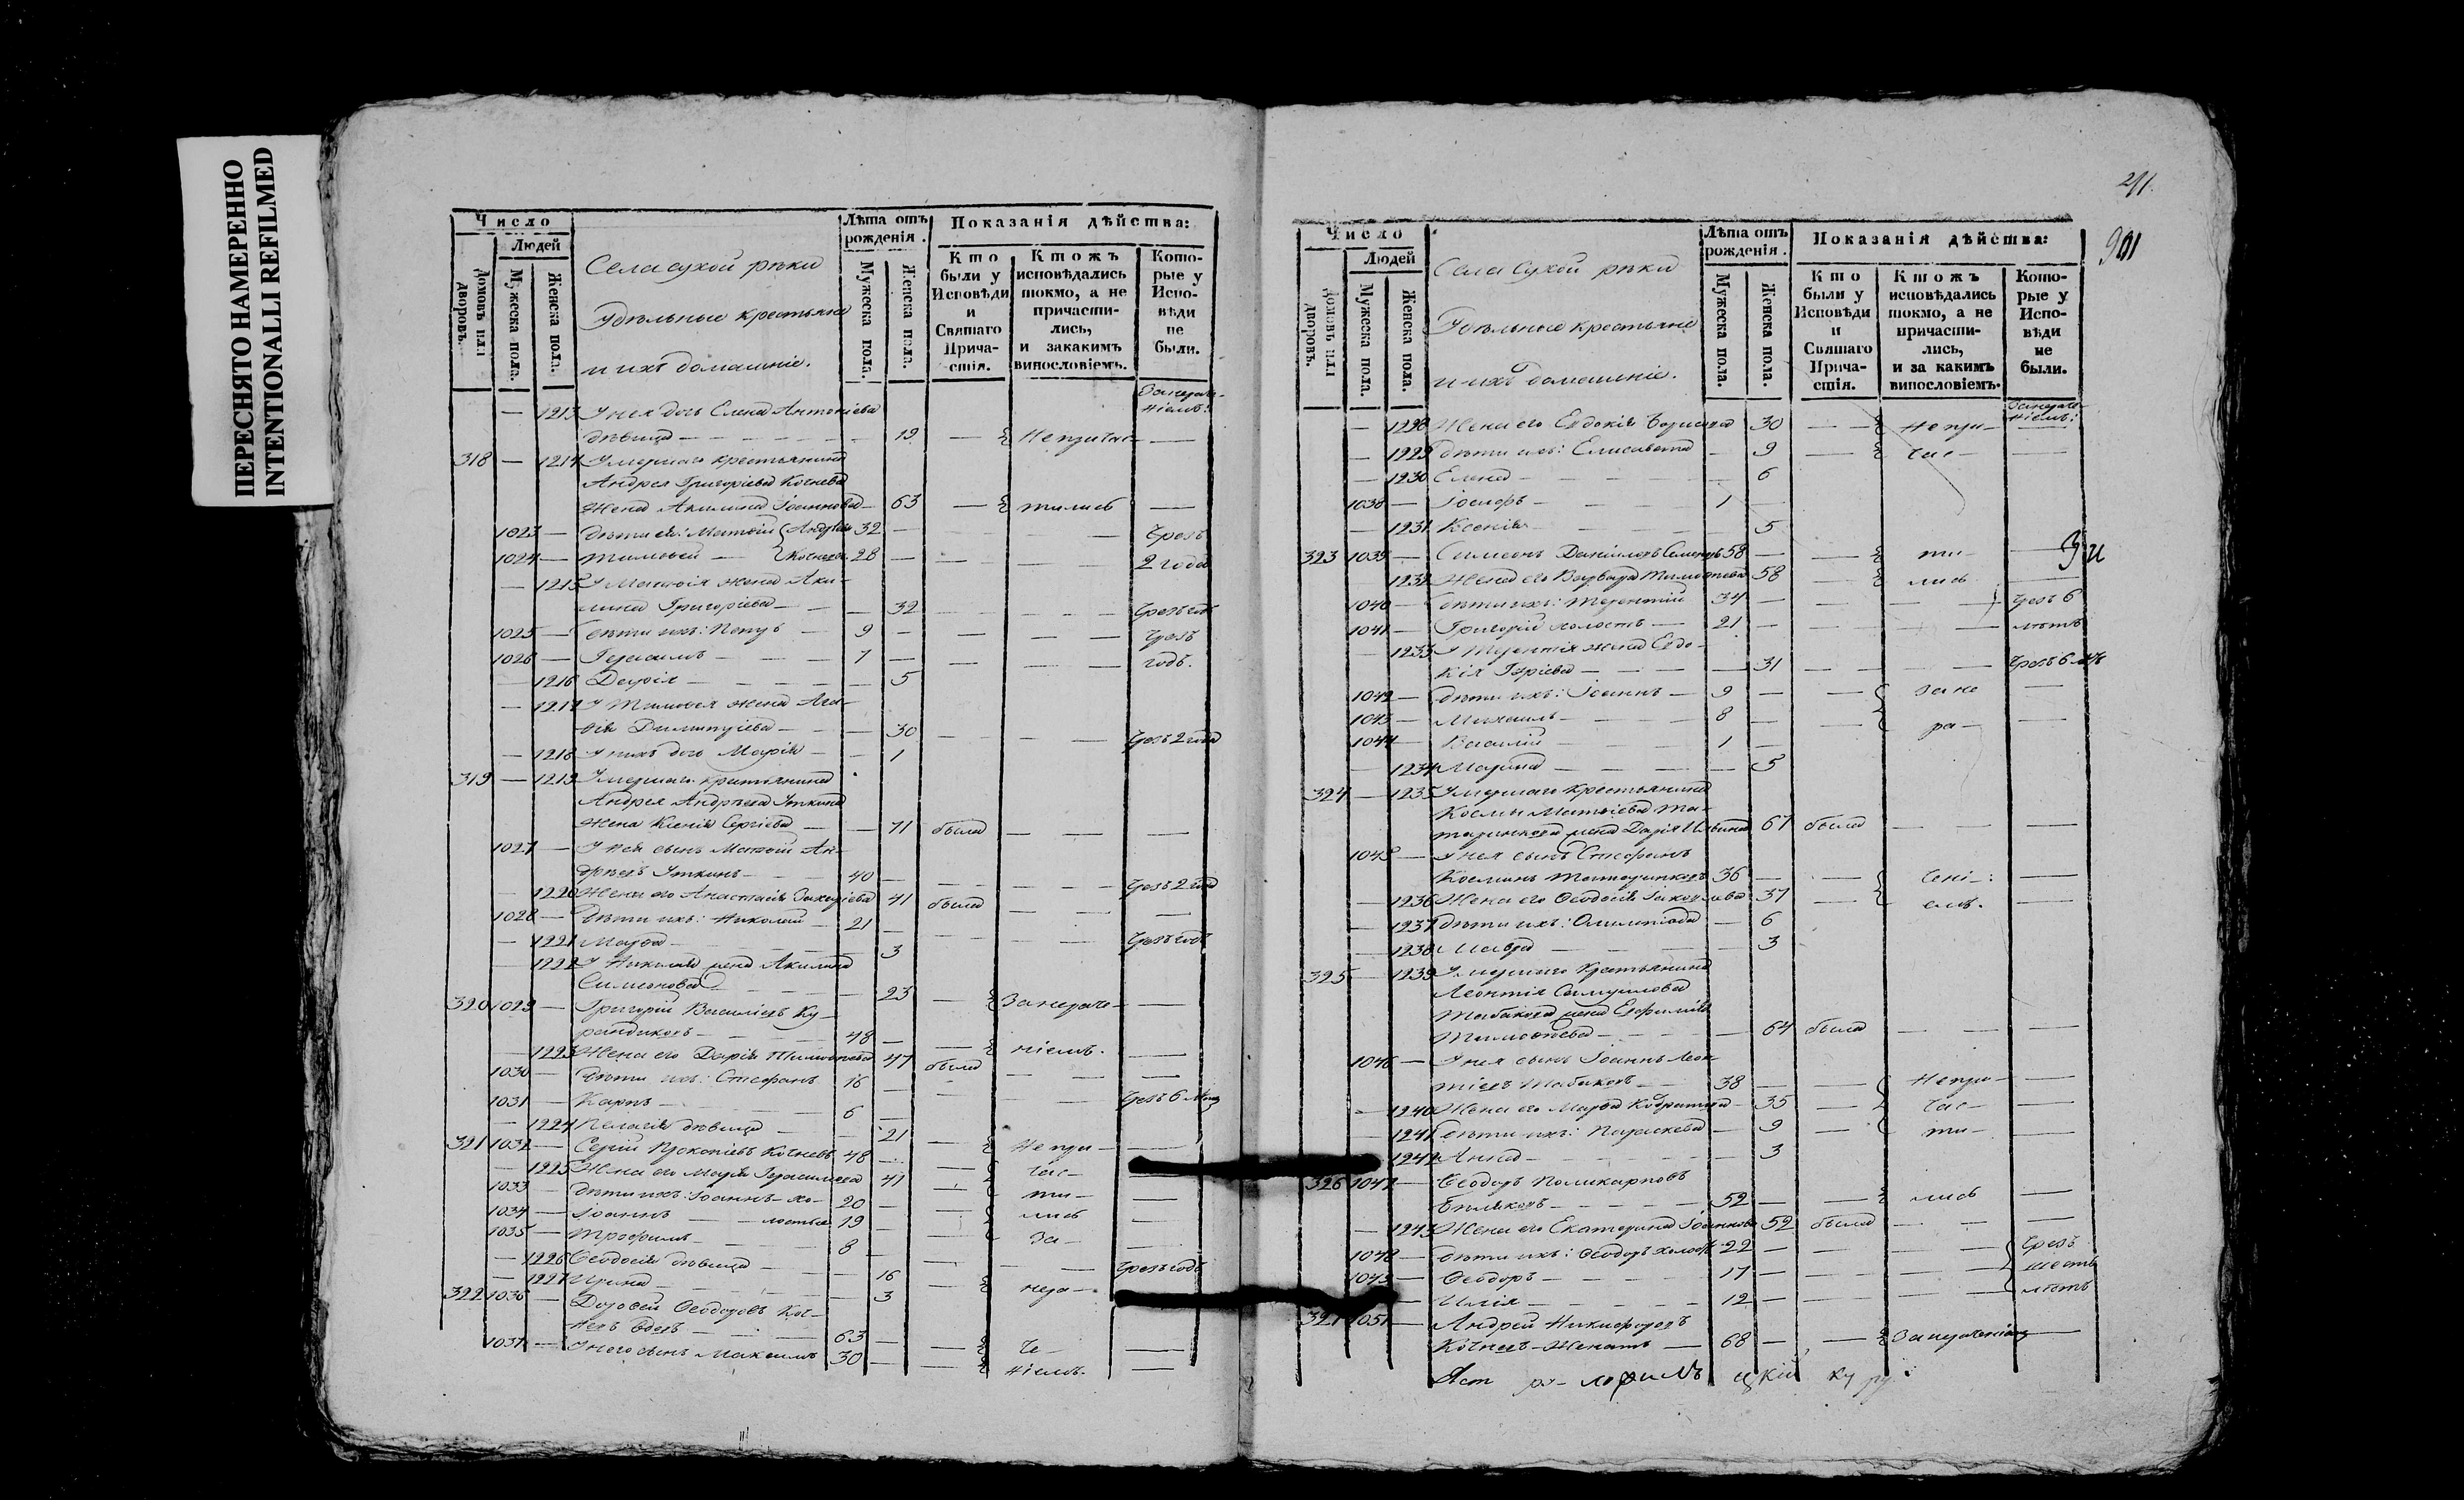 ПЕРЕСНЯТО НАМЕРЕННО
INTENTIONALLI REFILMED
Число
Людей
Домовъ или дворовъ.
Мужеска пола.
Женска пола.
Села Сухой рѣки
Удѣльные крестьяне
и ихъ домашніе.
Лѣта отъ рожденія.
Мужеска пола.
Женска пола.
Показанія дѣйства:
Кто были у Исповѣди и Святаго Прича-стія.
Ктожъ исповѣдались токмо, а не причасти-лись, и закакимъ винословіемъ.
Кото-рые у Испо-вѣди не были.
— 1213 У нея дочь Елена Антоніева
дѣвица — 19 — Непричас- —
318 — 1214 Умершаго крестьянина
Андрея Григоріева Кочнева
жена Акилина Іоаннова — 63 — тились —
1023 — дѣти ея: Матѳей Андреевы 32 — Чрезъ
1024 — Тимоѳей — Кочневы 28 — 2 года
— 1215 У Матѳея жена Аки-
лина Григоріева — 32 — Чрезъ годъ
1025 — Дѣти ихъ: Петръ — 9 — Чрезъ
1026 — Герасимъ — 7 — годъ.
— 1216 Дарія — 5
— 1217 У Тимоѳея жена Ага-
ѳія Димитріева — 30 — Чрезъ 2 года
— 1218 У нихъ дочь Марія — 1
319 — 1219 Умершаго крестьянина
Андрея Андреева Уткина
жена Ксенія Сергіева — 71 была — —
1027 — У нея сынъ Матѳей Ан-
дреевъ Уткинъ — 40 — Чрезъ 2 года
— 1220 Жена его Анастасія Захаріева 41 была — —
1028 — Дѣти ихъ: Николай — 21 —
— 1221 Марѳа — 3 Чрезъ годъ
— 1222 У Николая жена Акилина
Симеонова — 23 — Занераче- —
320 1029 — Григорій Васильевъ Ку-
рандиковъ — 48 — ніемъ. —
— 1223 Жена его Дарія Тимоѳеева 47 была — —
1030 — Дѣти ихъ: Стефанъ 16 —
1031 — Карпъ — 6 — Чрезъ 6
— 1224 Пелагія дѣвица — 21
321 1032 — Сергій Прокопіевъ Кочневъ 48 — Непри- —
— 1225 Жена его Марія Герасимова 41 — час- —
1033 — Дѣти ихъ: Іоаннъ хо- 20 — ти- —
1034 — Іоаннъ — лостые 19 — лись —
1035 — Трофимъ — 8 — За- —
— 1226 Ѳеодосія дѣвица — 16 Чрезъ годъ
— 1227 Ирина — 3 — нера- —
322 1036 — Дороѳей Ѳеодоровъ Коч-
невъ вдовъ — 63 — че- —
1037 — У него сынъ Максимъ 30 — ніемъ. —
211.
901
Число
Людей
Домовъ или дворовъ.
Мужеска пола.
Женска пола.
Села Сухой рѣки
Удѣльные крестьяне
и ихъ домашніе.
Лѣта отъ рожденія.
Мужеска пола.
Женска пола.
Показанія дѣйства:
Кто были у Исповѣди и Святаго Прича-стія.
Ктожъ исповѣдались токмо, а не причасти-лись, и за какимъ винословіемъ.
Кото-рые у Испо-вѣди не были.
— 1228 Жена его Евдокія Борисова 30 — Непри- —
— 1229 дѣти ихъ: Елисавета — 9 — час- —
— 1230 Елена — 6
1038 — Іосифъ — 1 —
— 1231 Ксенія — 5
323 1039 — Симеонъ Даніиловъ 58 — ти-
1232 Жена его Варвара Тимоѳеева 58 — лись —
1040 — Дѣти ихъ: Терентій 34 — Чрезъ 6
1041 — Григорій холостъ — 21 — лѣтъ
— 1233 У Терентія жена Евдо-
кія — 31 — Чрезъ 6
1042 — Дѣти ихъ: Іоаннъ — 9 — За не —
1043 — Михаилъ — 8 — ра- —
1044 — Василій — 1 —
— 1234 Марина — 5
324 — 1235 Умершаго крестьянина
Космы Матѳіева Та-
таринкова жена Дарія Ильина 67 была — —
1045 — У нея сынъ Стефанъ
Косминъ Татаринковъ 36 — чені-: —
— 1236 Жена его Ѳеодосія Іаковлева 37 — емъ. —
— 1237 Дѣти ихъ: Олимпіада — 6
— 1238 Мавра — 3
325 — 1239 Умершаго крестьянина
Леонтія Самуилова
Табакова жена Евфимія
Тимоѳеева — 64 была — —
1046 — У нея сынъ Іоаннъ Леон-
тіевъ Табаковъ — 38 — Непри- —
— 1240 Жена его Марѳа Кондратова 35 — час- —
— 1241 Дѣти ихъ: Параскева — 9 — ти- —
— 1242 Анна — 3
326 1047 — Ѳеодоръ Поликарповъ
Бѣляковъ — 52 — лись —
— 1243 Жена его Екатерина Іоаннова 52 была — —
1048 — Дѣти ихъ: Ѳеодоръ холостъ 22 — Чрезъ
1049 — Ѳеодоръ — 17 — шесть
— Илія — 12 — лѣтъ
327 1051 — Андрей Никифоровъ
Кочневъ Женатъ — 68 — Занераченіемъ —